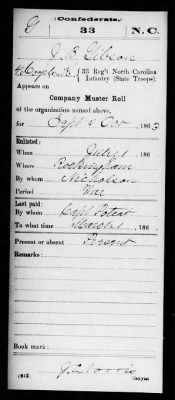 (Confederate.)
G 33 N. C.
J. B. Gibson
Co. { 33 Reg't North Carolina
Infantry (State Troops).
Appears on
Company Muster Roll
of the organization named above,
for Sept & Oct, 1863
Enlisted:
When July 1, 186
Where Rockingham
By whom Nicholson
Period War
Last paid:
By whom Capt Poteat
To what time 186
Present or absent Present
Remarks:
Book mark:
Copyist.